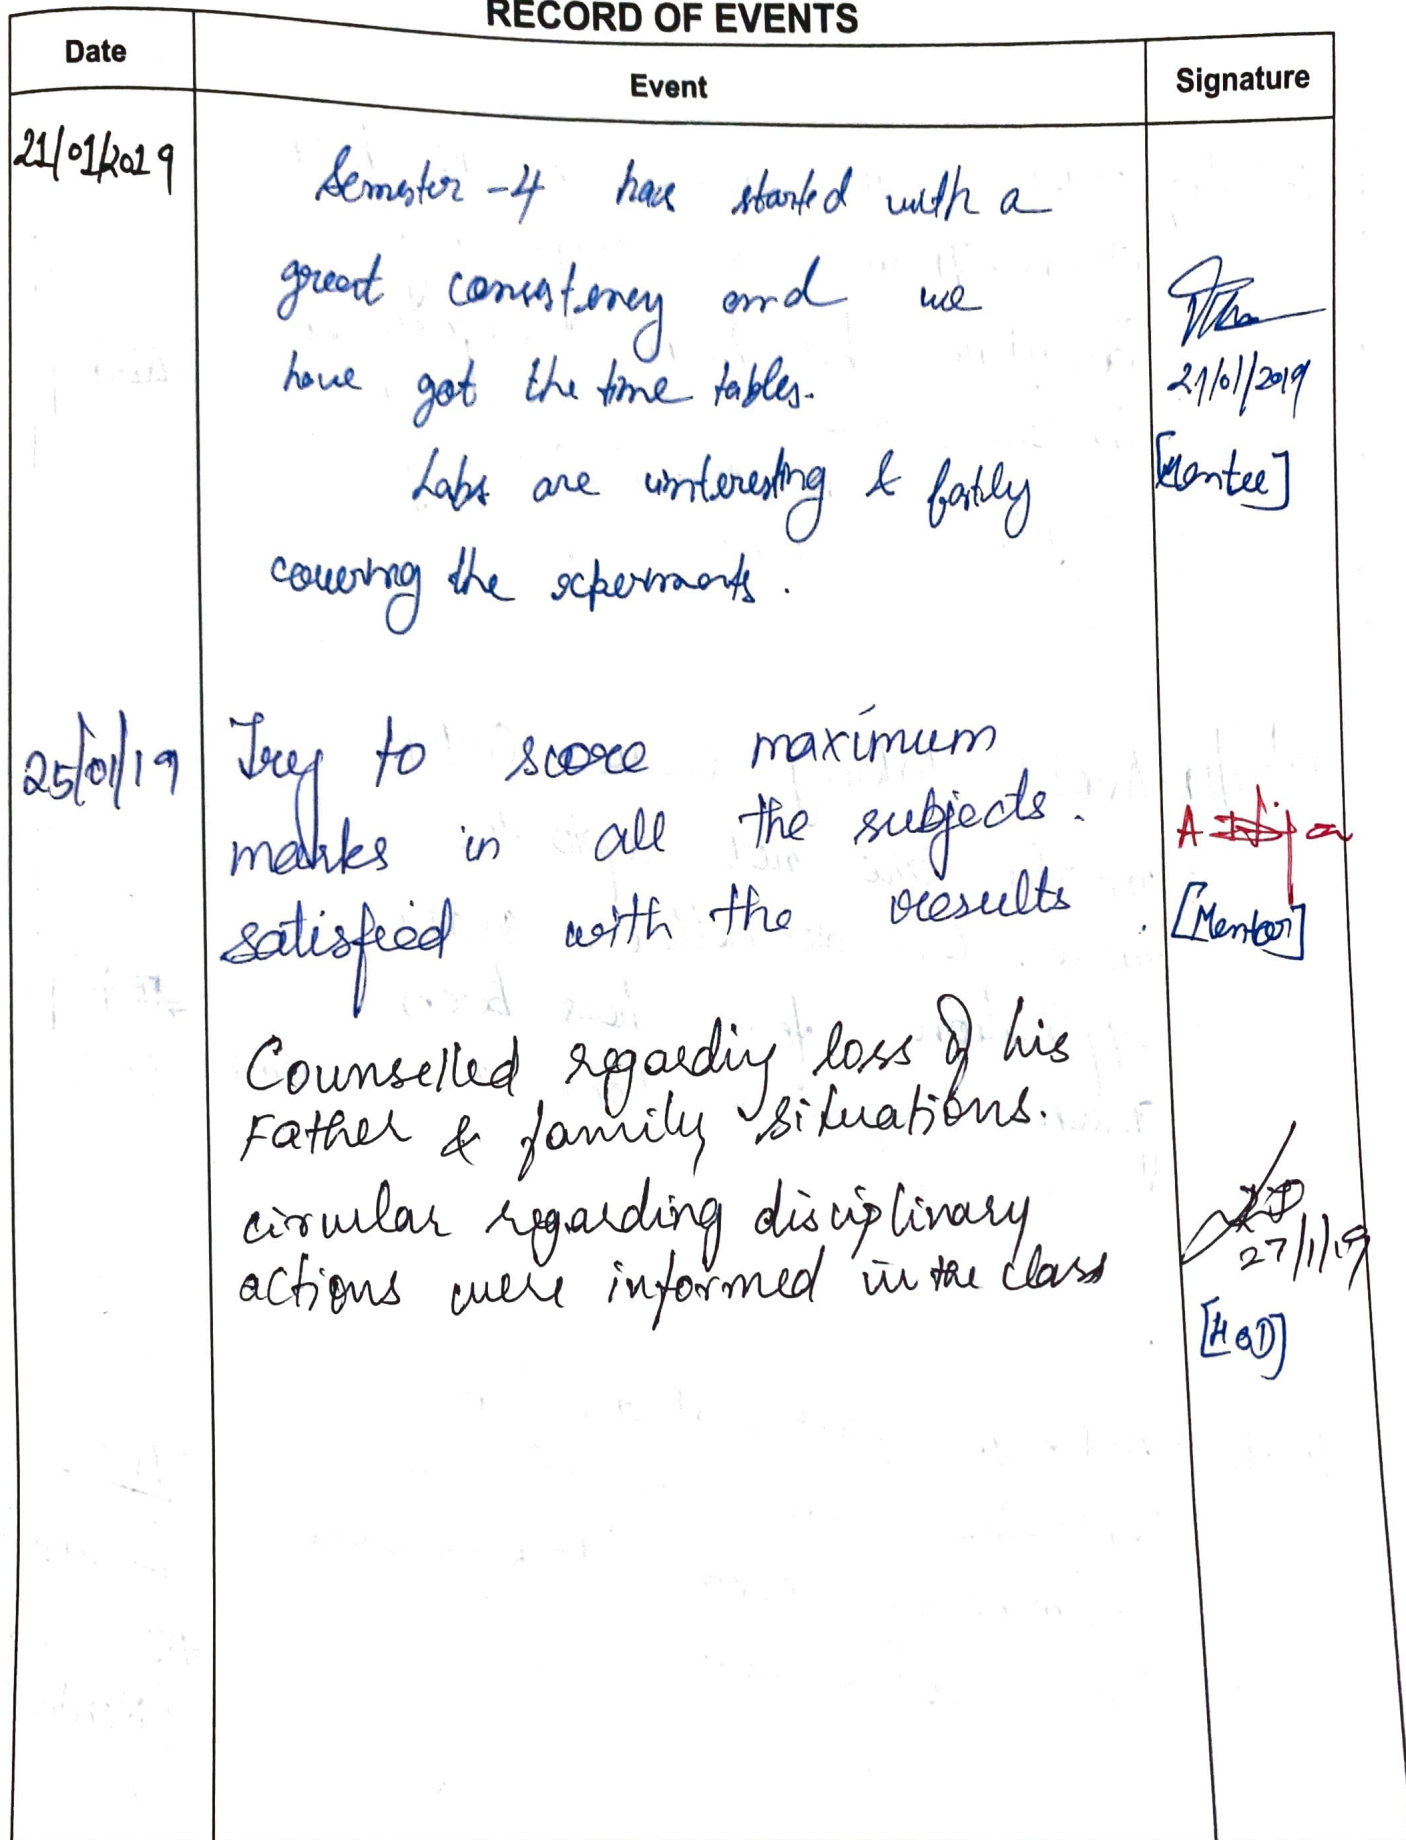 RECORD OF EVENTS
Date Event Signature
21/01/2019
Semester -4 has started with a
great consistency and we
have got the time tables.
21/01/2019
Labs are interesting &
[Mentee]
covering the
25/01/19
Try to score maximum
marks in all the subjects.
satisfied with the results.
[Mentor]
Counselled regarding loss of his
Father & family situations.
circular regarding disciplinary
27/1/19
actions were informed in the class
[HOD]